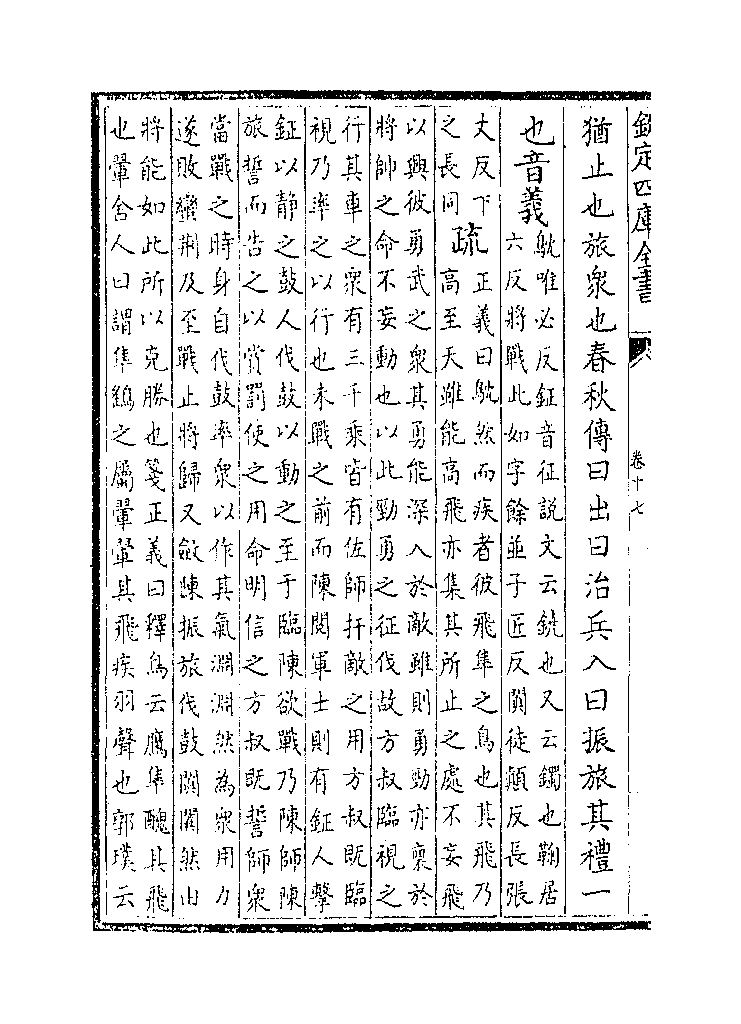 欽定四庫全書
卷十七
猶止也旅衆也春秋傳曰出曰治兵入曰振旅其禮一
也音義
鴥唯必反鉦音征説文云鐃也又云鐲也鞠居
六反將戰此如字餘並子匠反闐徒顛反長張
丈反下
之長同
疏
正義曰鴥然而疾者彼飛隼之鳥也其飛乃
高至天雖能高飛亦集其所止之處不妄飛
以興彼勇武之衆其勇能深入於敵雖則勇勁亦稟於
將帥之命不妄動也以此勁勇之征伐故方叔臨視之
行其車之衆有三千乗皆有佐師扞敵之用方叔既臨
視乃率之以行也未戰之前而陳閲軍士則有鉦人擊
鉦以静之鼓人伐鼓以動之至于臨陳欲戰乃陳師陳
旅誓而告之以賞罰使之用命明信之方叔既誓師衆
當戰之時身自伐鼓率衆以作其氣淵淵然為衆用力
遂敗蠻荆及至戰止將歸又斂陳振旅伐鼓闐闐然由
將能如此所以克勝也箋正義曰釋鳥云鷹隼醜其飛
也翬舍人曰謂隼鷂之屬翬翬其飛疾羽聲也郭璞云